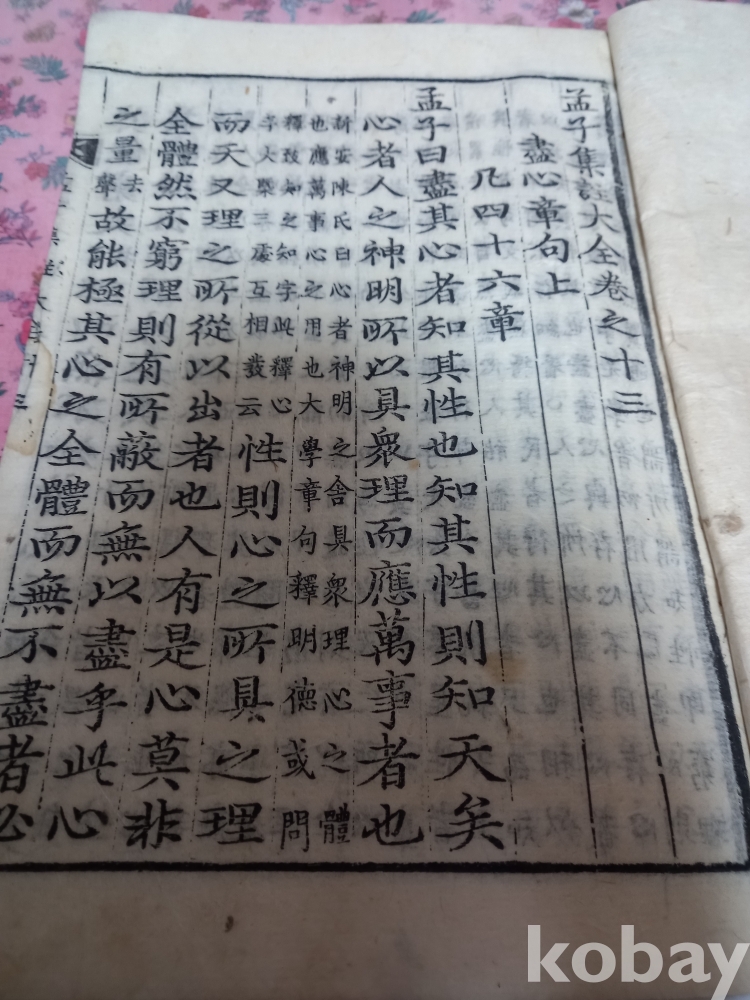 孟子集註大全卷之十三
盡心章句上
凡四十六章
孟子曰盡其心者知其性也知其性則知天矣
心者人之神明所以具衆理而應萬事者也
新安陳氏曰心者神明之舍具衆理心之體
也應萬事心之用也大學章句釋明德或問
釋致知之知字此釋心
字大槩三處互相發云
性則心之所具之理
而天又理之所從以出者也人有是心莫非
全體然不窮理則有所蔽而無以盡乎此心
之量去聲故能極其心之全體而無不盡者必
kobay